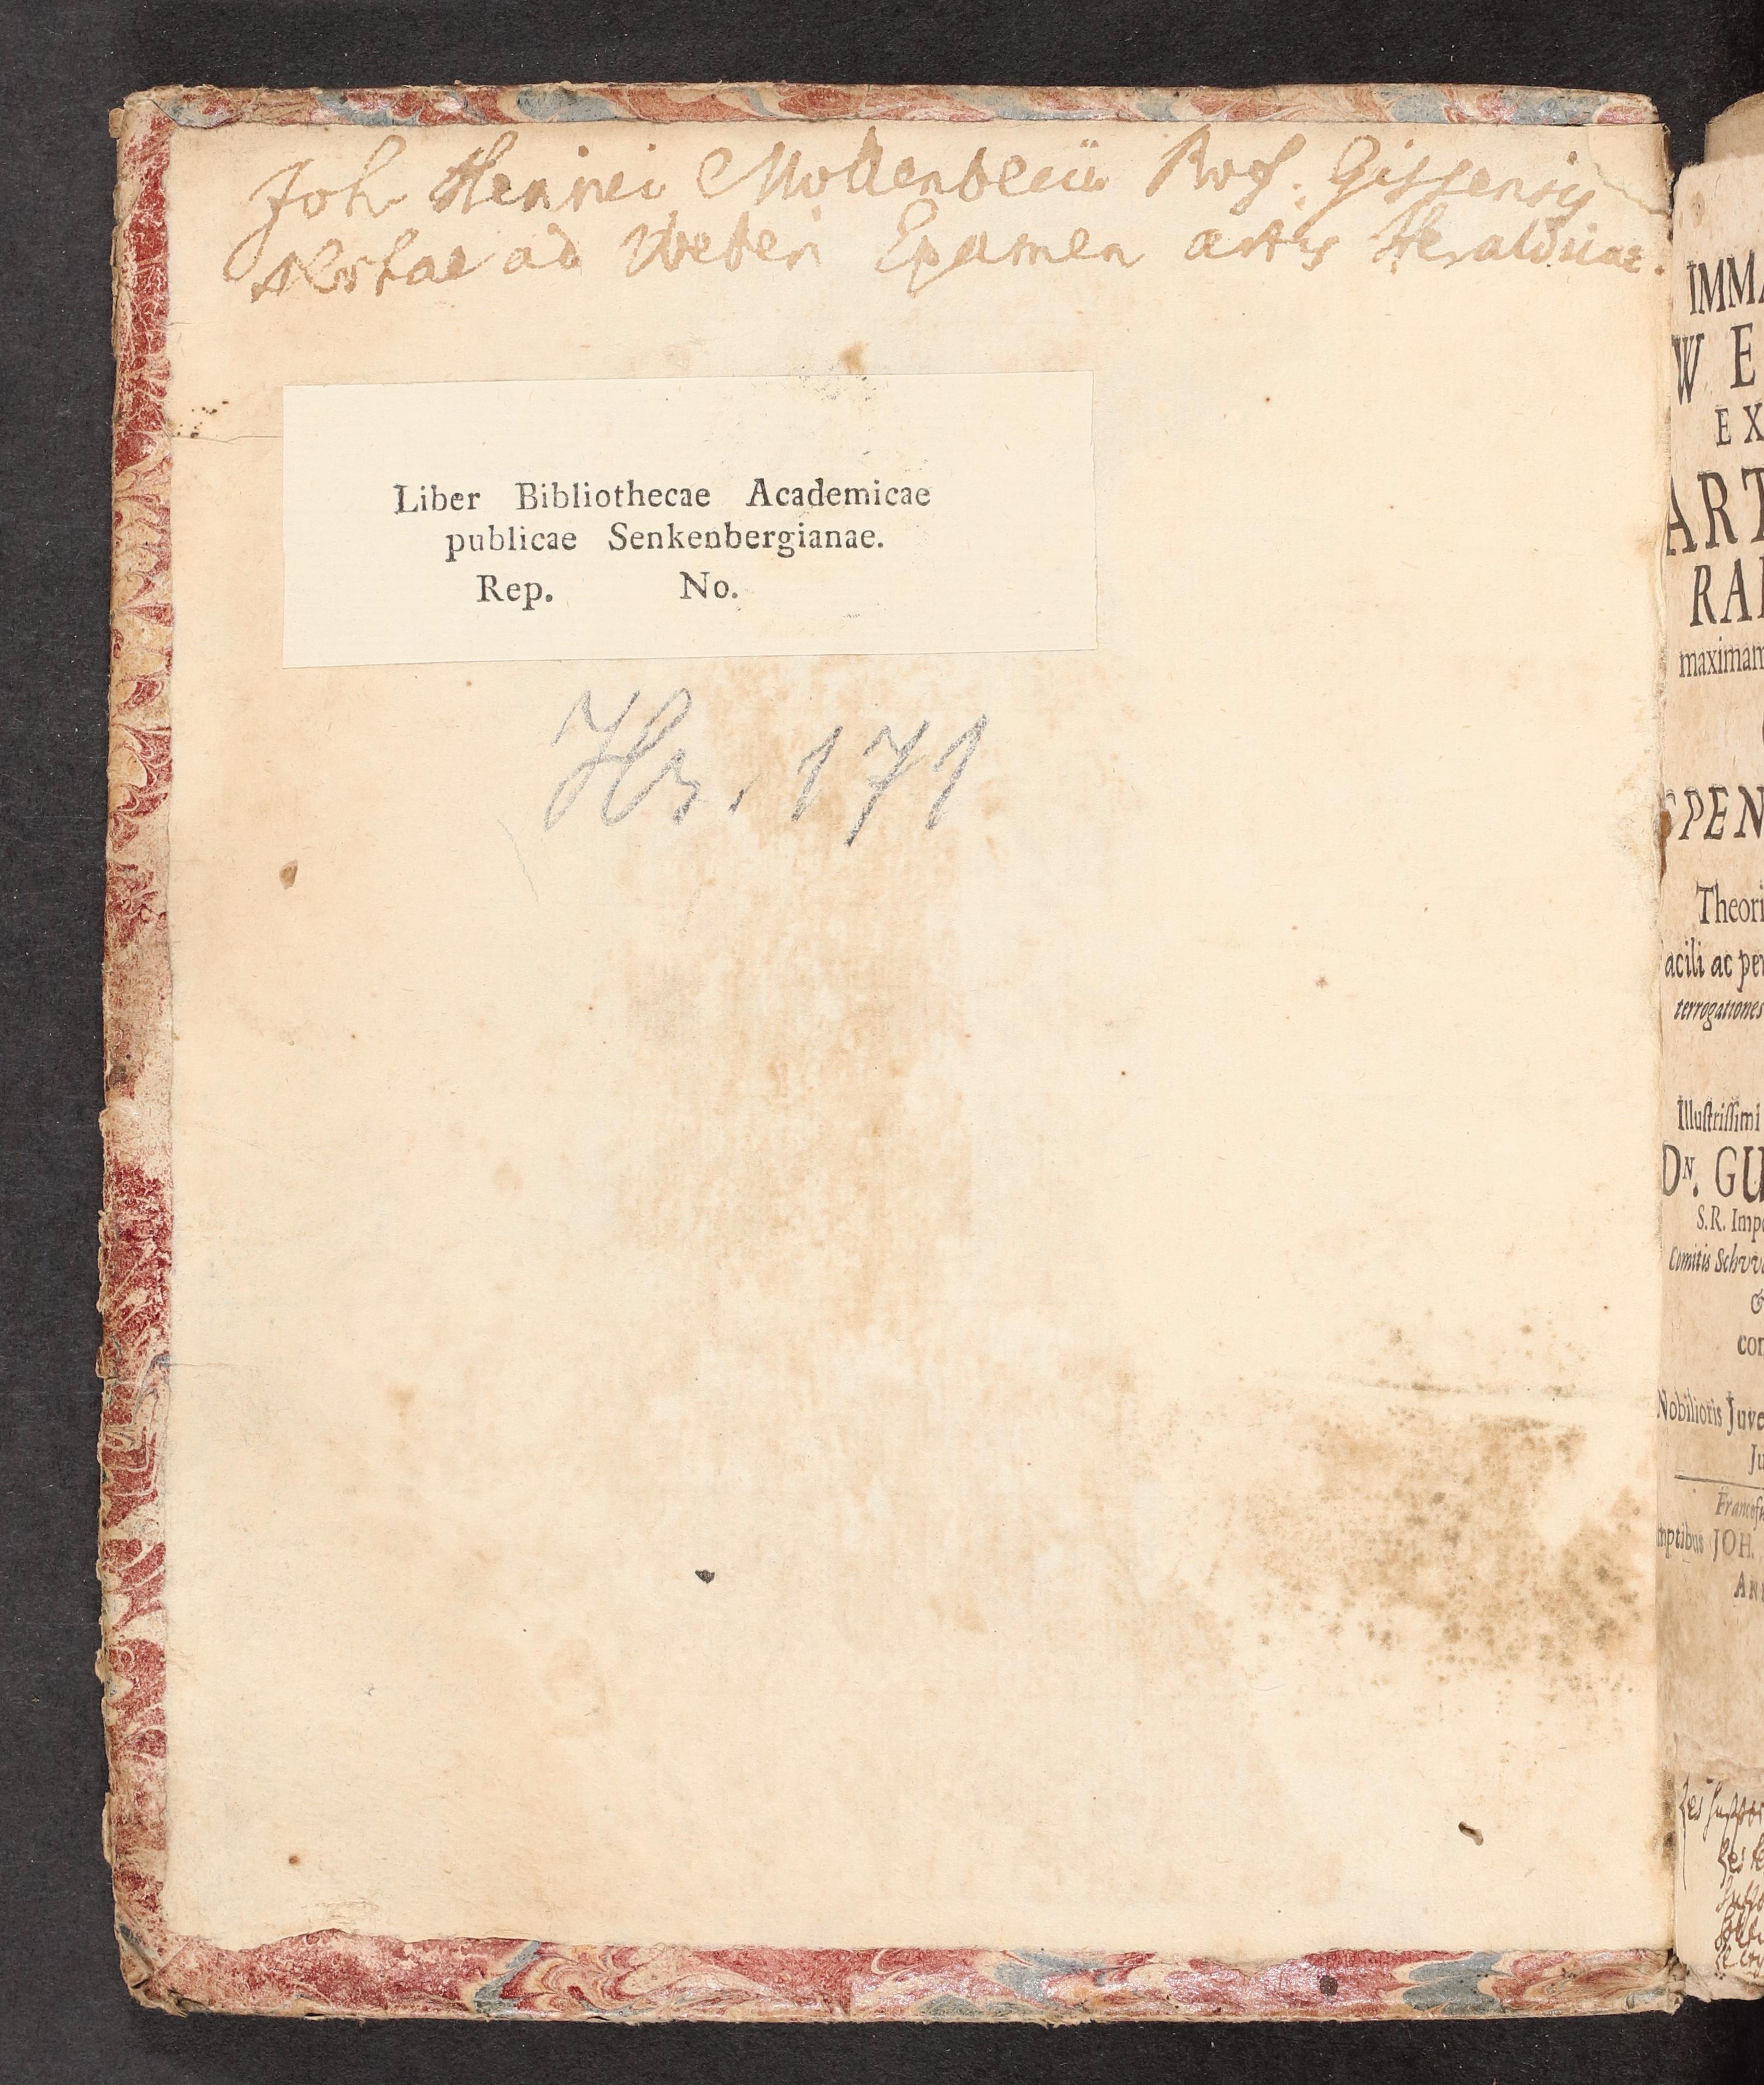 Joh Henrici Mollenbecii Prof. Gissensis
Notae ad Weberi Examen artis Heraldicae.
Liber Bibliothecae Academicae
publicae Senkenbergianae.
Rep. No.
Hs. 171
IMMA
WE
EX
ART
RAL
maximam
SPEN
Theori
acili ac per
terrogationes
Illustrissimi
DN. GU
S.R. Impe
Comitis Schvv
&
con
Nobilioris Juve
Ju
Francof
mptibus JOH.
AN